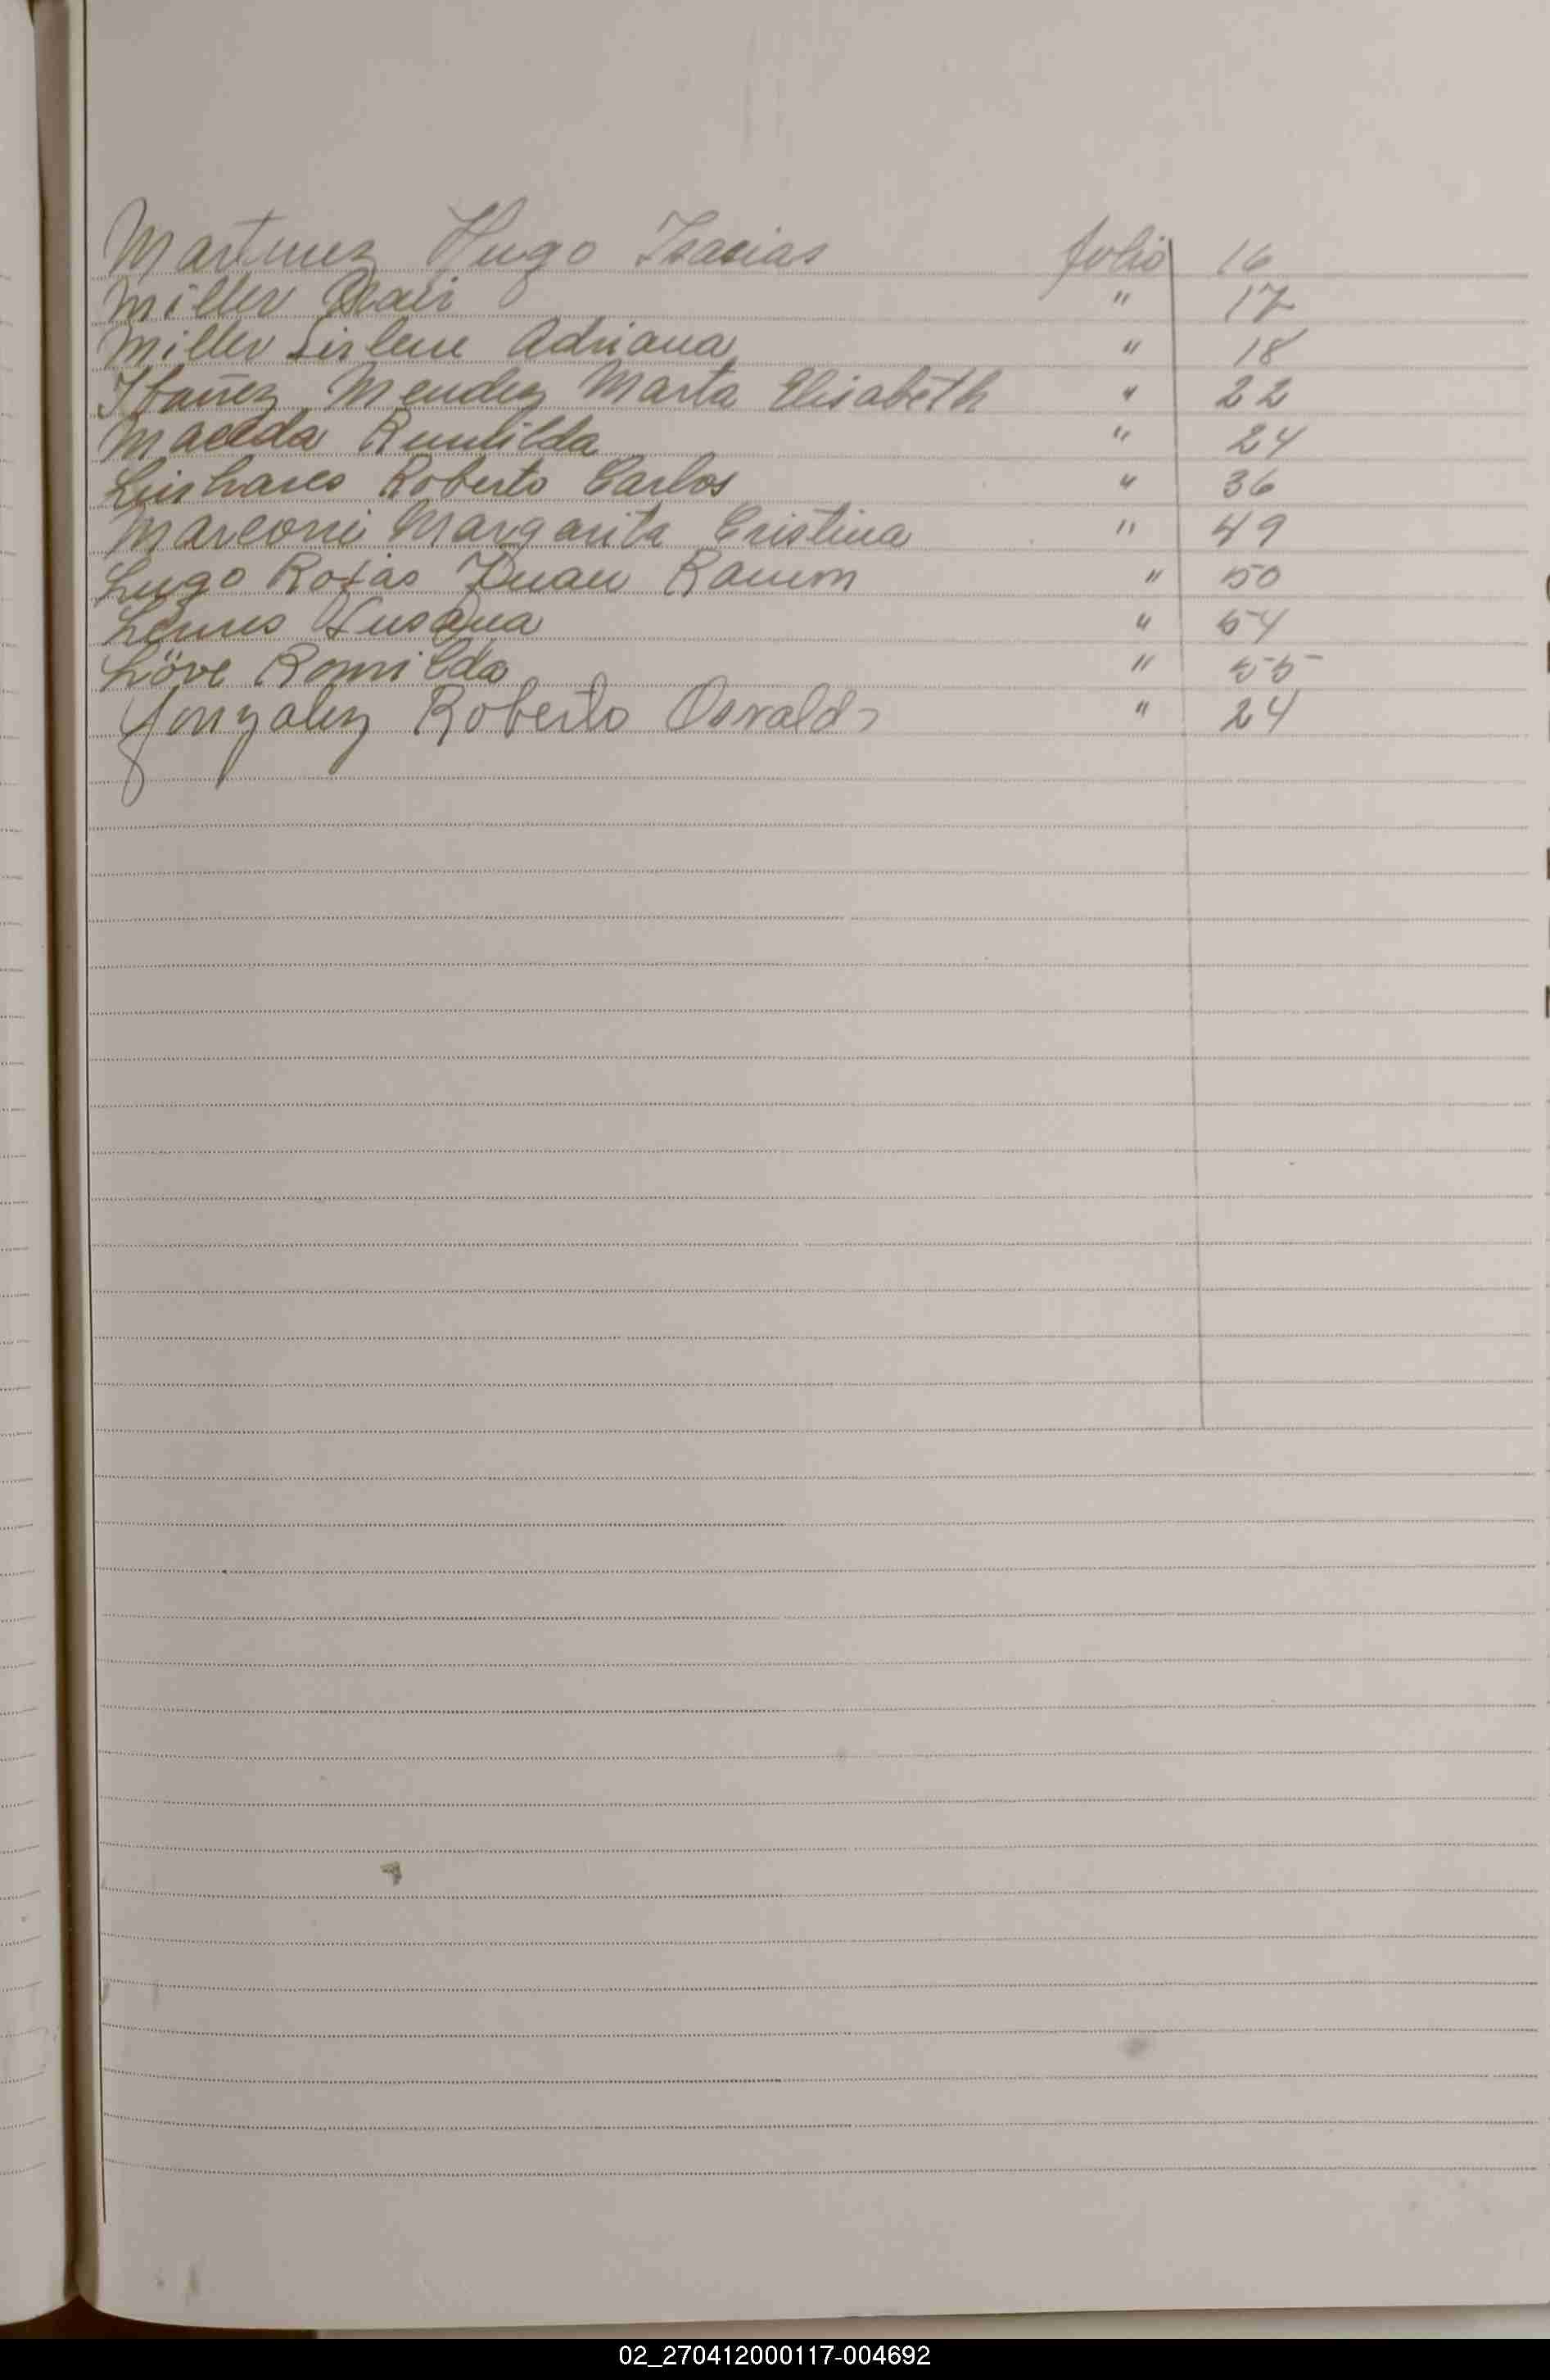 Martinez Hugo Isacias folio 16
Miller Olair " 17
Miller Sirlene Adriana " 18
Ibañez Mendez Marta Elisabeth " 22
Maceda Rumilda " 24
Linhares Roberto Carlos " 36
Marconi Margarita Cristina " 49
Lugo Rojas Juan Ramm " 50
Lemes Susana " 54
Löve Romilda " 55
Gonzalez Roberto Osvaldo " 24
02_270412000117-004692